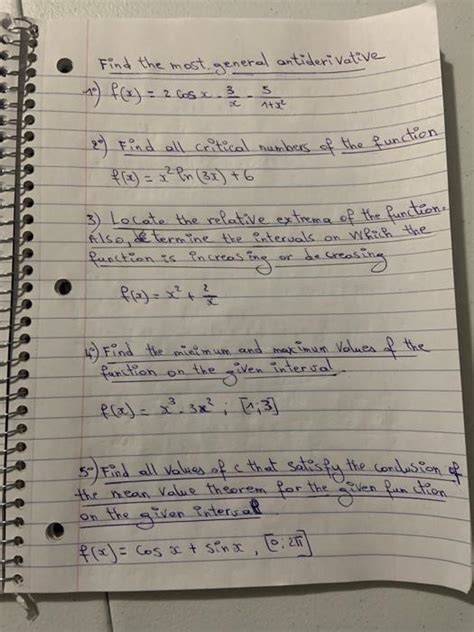 Find the most general antiderivative
1°) f(x) = 2 cos x - 3/x - 5/1+x²
2°) Find all critical numbers of the function
f(x) = x² ln (3x) + 6
3) Locate the relative extrema of the function.
Also, determine the intervals on which the
function is increasing or decreasing
f(x) = x² + 2/x
4°) Find the minimum and maximum values of the
function on the given interval.
f(x) = x³ - 3x² ; [1, 3]
5°) Find all values of c that satisfy the conclusion of
the mean value theorem for the given function
on the given interval
f(x) = cos x + sin x , [0; 2π]